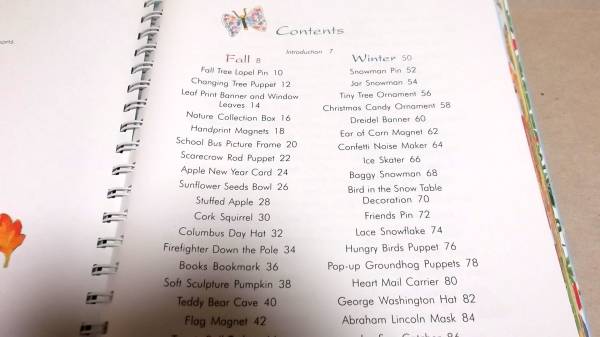 Contents
Introduction 7
Fall 8
Fall Tree Lapel Pin 10
Changing Tree Puppet 12
Leaf Print Banner and Window
Leaves 14
Nature Collection Box 16
Handprint Magnets 18
School Bus Picture Frame 20
Scarecrow Rod Puppet 22
Apple New Year Card 24
Sunflower Seeds Bowl 26
Stuffed Apple 28
Cork Squirrel 30
Columbus Day Hat 32
Firefighter Down the Pole 34
Books Bookmark 36
Soft Sculpture Pumpkin 38
Teddy Bear Cave 40
Flag Magnet 42
Winter 50
Snowman Pin 52
Jar Snowman 54
Tiny Tree Ornament 56
Christmas Candy Ornament 58
Dreidel Banner 60
Ear of Corn Magnet 62
Confetti Noise Maker 64
Ice Skater 66
Baggy Snowman 68
Bird in the Snow Table
Decoration 70
Friends Pin 72
Lace Snowflake 74
Hungry Birds Puppet 76
Pop-up Groundhog Puppets 78
Heart Mail Carrier 80
George Washington Hat 82
Abraham Lincoln Mask 84